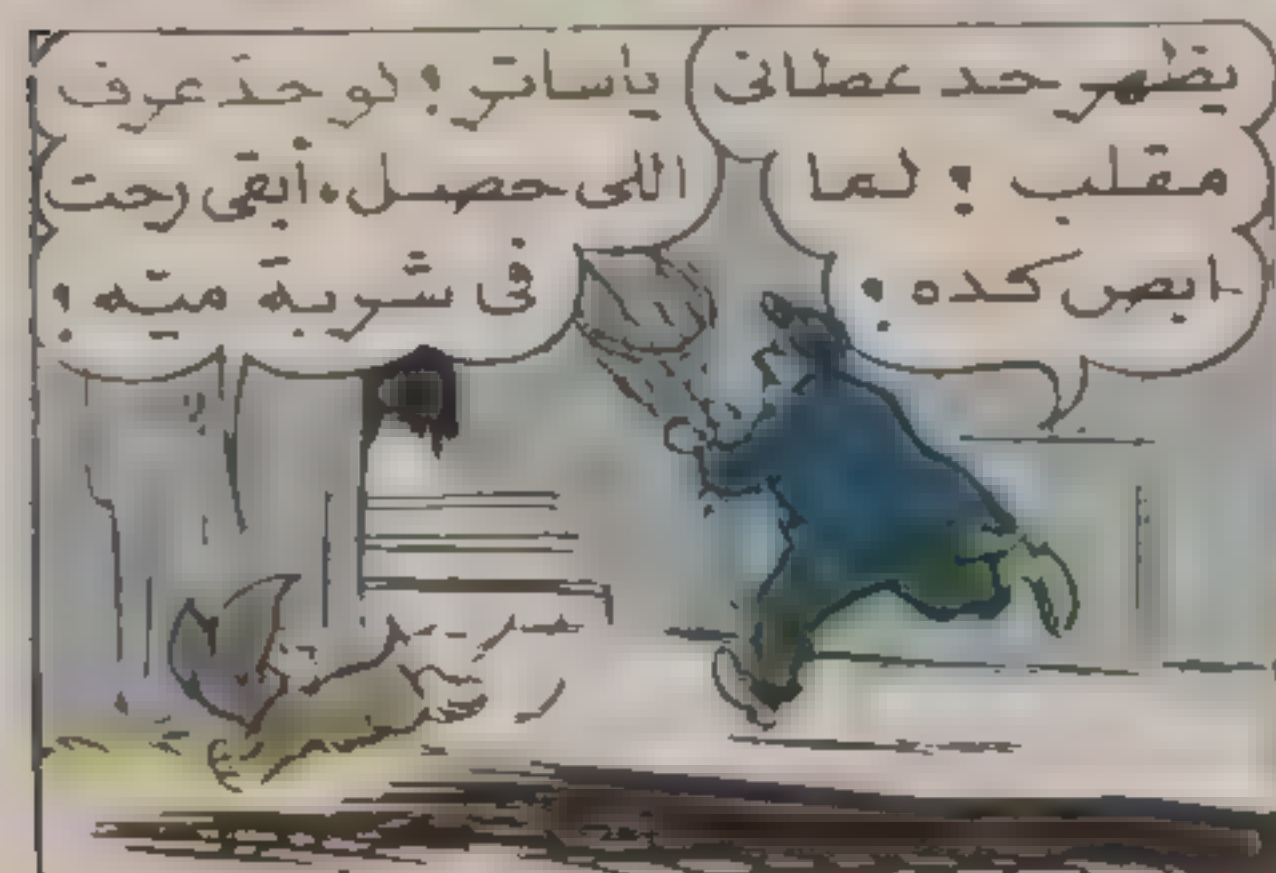 يظهر حد عطانى
مقلب ! لما
ابص كده !
ياساتر ! لو حد عرف
اللى حصل . أبقى رحت
فى شربة ميه !